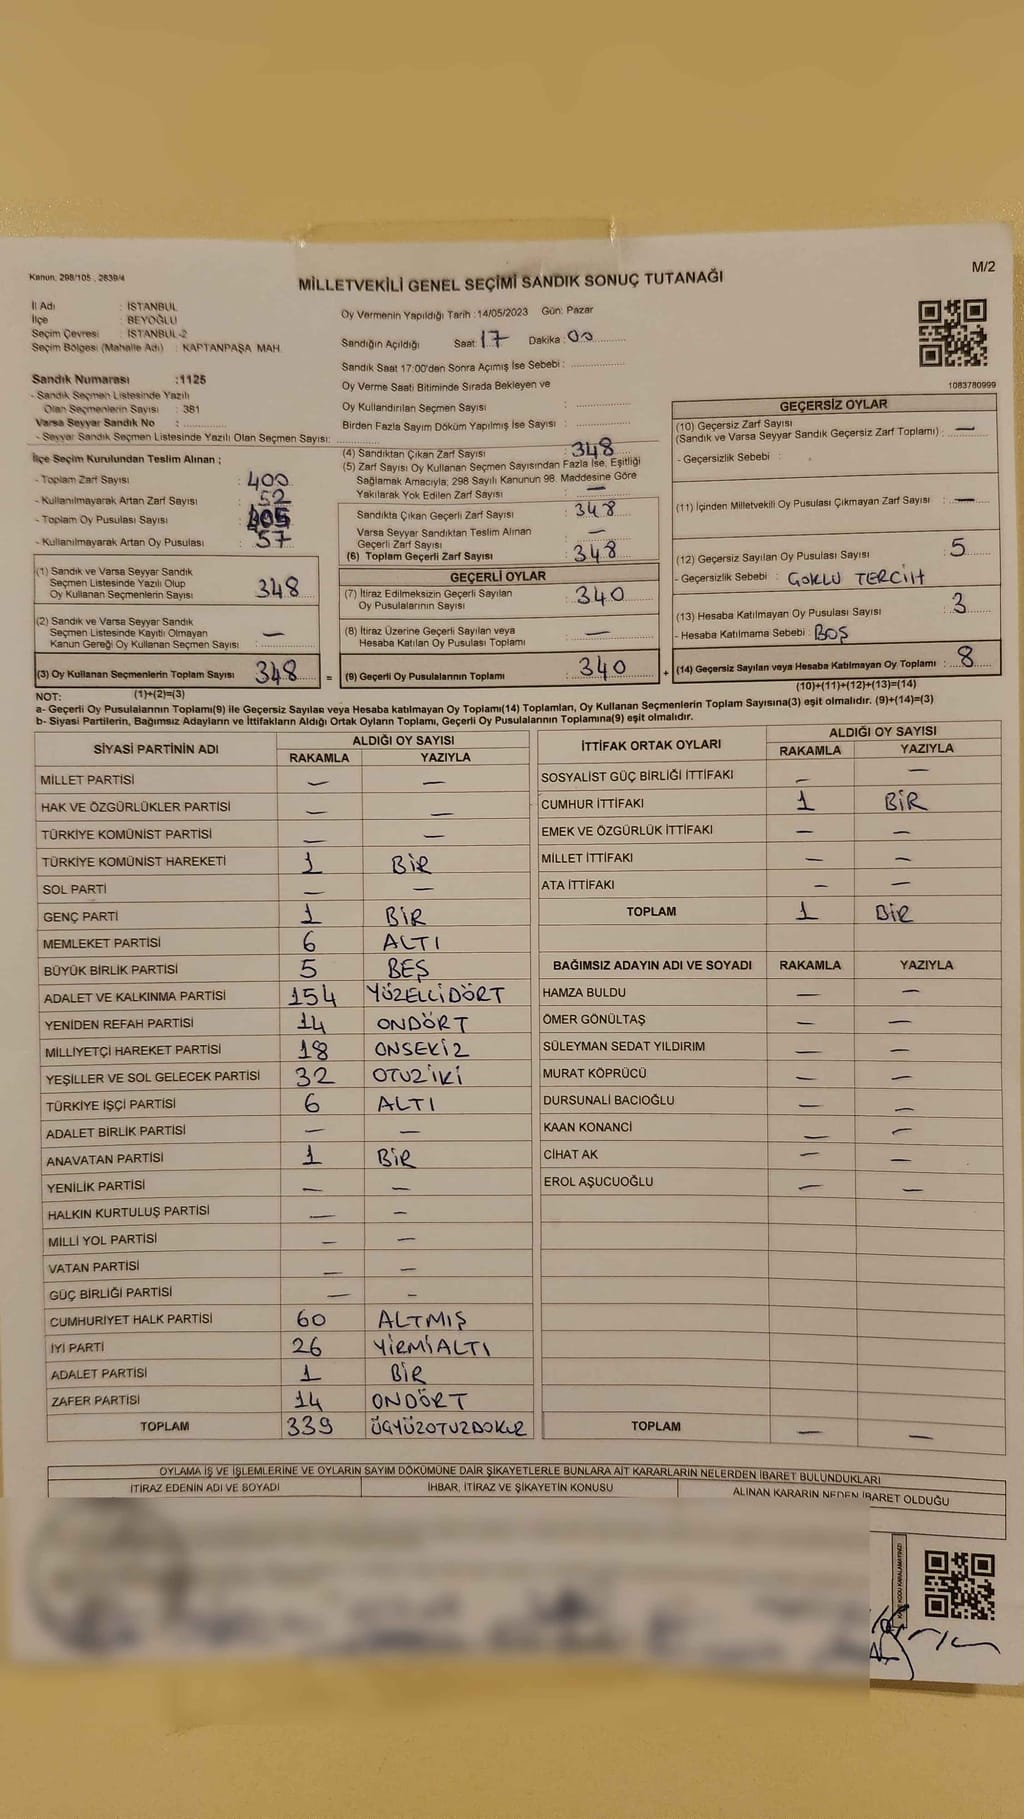 Kanun: 298/105 , 2839/4
M/2
MİLLETVEKİLİ GENEL SEÇİMİ SANDIK SONUÇ TUTANAĞI
İl Adı : İSTANBUL
İlçe : BEYOĞLU
Seçim Çevresi : İSTANBUL-2
Seçim Bölgesi (Mahalle Adı) : KAPTANPAŞA MAH.
Sandık Numarası :1125
- Sandık Seçmen Listesinde Yazılı
Olan Seçmenlerin Sayısı : 381
Varsa Seyyar Sandık No :
- Seyyar Sandık Seçmen Listesinde Yazılı Olan Seçmen Sayısı:
Oy Vermenin Yapıldığı Tarih :14/05/2023 Gün: Pazar
Sandığın Açıldığı Saat: 17 Dakika : 00
Sandık Saat 17:00'den Sonra Açımış İse Sebebi :
Oy Verme Saati Bitiminde Sırada Bekleyen ve
Oy Kullandırılan Seçmen Sayısı :
Birden Fazla Sayım Döküm Yapılmış İse Sayısı :
1083780999
İlçe Seçim Kurulundan Teslim Alınan ;
- Toplam Zarf Sayısı : 400
- Kullanılmayarak Artan Zarf Sayısı : 52
- Toplam Oy Pusulası Sayısı : 405
- Kullanılmayarak Artan Oy Pusulası : 57
(1) Sandık ve Varsa Seyyar Sandık
Seçmen Listesinde Yazılı Olup
Oy Kullanan Seçmenlerin Sayısı : 348
(2) Sandık ve Varsa Seyyar Sandık
Seçmen Listesinde Kayıtlı Olmayan
Kanun Gereği Oy Kullanan Seçmen Sayısı : —
(3) Oy Kullanan Seçmenlerin Toplam Sayısı : 348 =
(4) Sandıktan Çıkan Zarf Sayısı : 348
(5) Zarf Sayısı Oy Kullanan Seçmen Sayısından Fazla İse, Eşitliği
Sağlamak Amacıyla, 298 Sayılı Kanunun 98. Maddesine Göre
Yakılarak Yok Edilen Zarf Sayısı : —
Sandıkta Çıkan Geçerli Zarf Sayısı : 348
Varsa Seyyar Sandıktan Teslim Alınan
Geçerli Zarf Sayısı : —
(6) Toplam Geçerli Zarf Sayısı : 348
GEÇERLİ OYLAR
(7) İtiraz Edilmeksizin Geçerli Sayılan
Oy Pusulalarının Sayısı : 340
(8) İtiraz Üzerine Geçerli Sayılan veya
Hesaba Katılan Oy Pusulası Toplamı : —
(9) Geçerli Oy Pusulalarının Toplamı : 340 +
GEÇERSİZ OYLAR
(10) Geçersiz Zarf Sayısı
(Sandık ve Varsa Seyyar Sandık Geçersiz Zarf Toplamı) : —
- Geçersizlik Sebebi :
(11) İçinden Milletvekili Oy Pusulası Çıkmayan Zarf Sayısı : —
(12) Geçersiz Sayılan Oy Pusulası Sayısı : 5
- Geçersizlik Sebebi : ÇOKLU TERCİH
(13) Hesaba Katılmayan Oy Pusulası Sayısı : 3
- Hesaba Katılmama Sebebi : BOŞ
(14) Geçersiz Sayılan veya Hesaba Katılmayan Oy Toplamı : 8
NOT: (1)+(2)=(3)
(10)+(11)+(12)+(13)=(14)
a- Geçerli Oy Pusulalarının Toplamı(9) ile Geçersiz Sayılan veya Hesaba katılmayan Oy Toplamı(14) Toplamları, Oy Kullanan Seçmenlerin Toplam Sayısına(3) eşit olmalıdır. (9)+(14)=(3)
b- Siyasi Partilerin, Bağımsız Adayların ve İttifakların Aldığı Ortak Oyların Toplamı, Geçerli Oy Pusulalarının Toplamına(9) eşit olmalıdır.
SİYASİ PARTİNİN ADI ALDIĞI OY SAYISI
RAKAMLA YAZIYLA
MİLLET PARTİSİ — —
HAK VE ÖZGÜRLÜKLER PARTİSİ — —
TÜRKİYE KOMÜNİST PARTİSİ — —
TÜRKİYE KOMÜNİST HAREKETİ 1 BİR
SOL PARTİ — —
GENÇ PARTİ 1 BİR
MEMLEKET PARTİSİ 6 ALTI
BÜYÜK BİRLİK PARTİSİ 5 BEŞ
ADALET VE KALKINMA PARTİSİ 154 YÜZELLİDÖRT
YENİDEN REFAH PARTİSİ 14 ONDÖRT
MİLLİYETÇİ HAREKET PARTİSİ 18 ONSEKİZ
YEŞİLLER VE SOL GELECEK PARTİSİ 32 OTUZİKİ
TÜRKİYE İŞÇİ PARTİSİ 6 ALTI
ADALET BİRLİK PARTİSİ — —
ANAVATAN PARTİSİ 1 BİR
YENİLİK PARTİSİ — —
HALKIN KURTULUŞ PARTİSİ — —
MİLLİ YOL PARTİSİ — —
VATAN PARTİSİ — —
GÜÇ BİRLİĞİ PARTİSİ — —
CUMHURİYET HALK PARTİSİ 60 ALTMIŞ
İYİ PARTİ 26 YİRMİALTI
ADALET PARTİSİ 1 BİR
ZAFER PARTİSİ 14 ONDÖRT
TOPLAM 339 ÜÇYÜZOTUZDOKUZ
İTTİFAK ORTAK OYLARI ALDIĞI OY SAYISI
RAKAMLA YAZIYLA
SOSYALİST GÜÇ BİRLİĞİ İTTİFAKI — —
CUMHUR İTTİFAKI 1 BİR
EMEK VE ÖZGÜRLÜK İTTİFAKI — —
MİLLET İTTİFAKI — —
ATA İTTİFAKI — —
TOPLAM 1 BİR
BAĞIMSIZ ADAYIN ADI VE SOYADI RAKAMLA YAZIYLA
HAMZA BULDU — —
ÖMER GÖNÜLTAŞ — —
SÜLEYMAN SEDAT YILDIRIM — —
MURAT KÖPRÜCÜ — —
DURSUNALİ BACIOĞLU — —
KAAN KONANCİ — —
CİHAT AK — —
EROL AŞUCUOĞLU — —
TOPLAM — —
OYLAMA İŞ VE İŞLEMLERİNE VE OYLARIN SAYIM DÖKÜMÜNE DAİR ŞİKAYETLERLE BUNLARA AİT KARARLARIN NELERDEN İBARET BULUNDUKLARI
İTİRAZ EDENİN ADI VE SOYADI İHBAR, İTİRAZ VE ŞİKAYETİN KONUSU ALINAN KARARIN NEDEN İBARET OLDUĞU